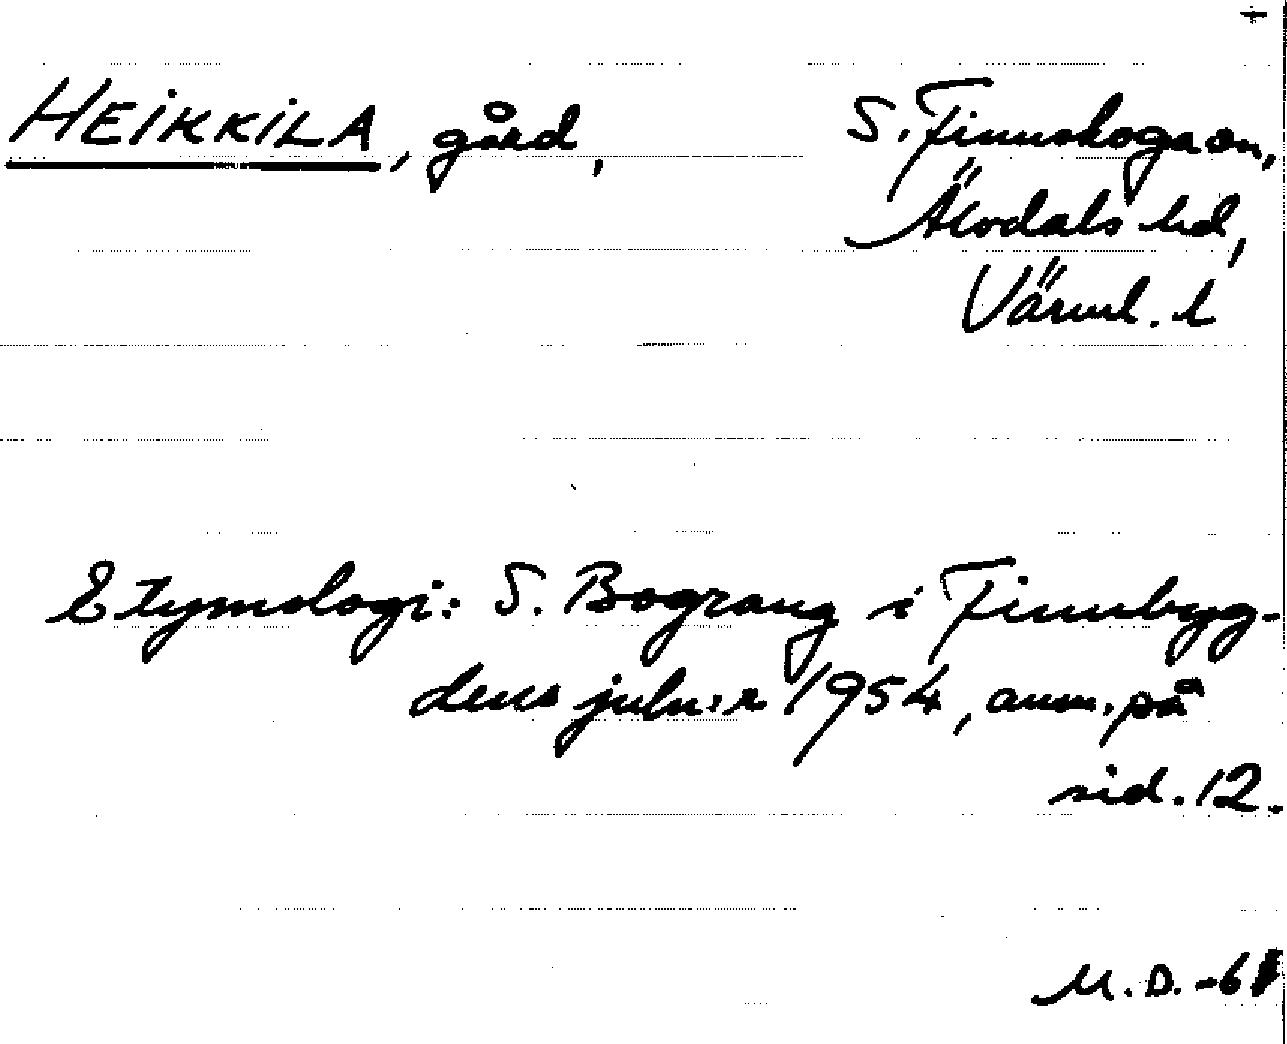 HEIKKILA, gård, S. Finnskoga sn,
Älvdals hd,
Värml. l
Etymologi: S. Bograng i Finnbyg-
dens julnr 1954, anm. på
sid. 12.
M.D. -61